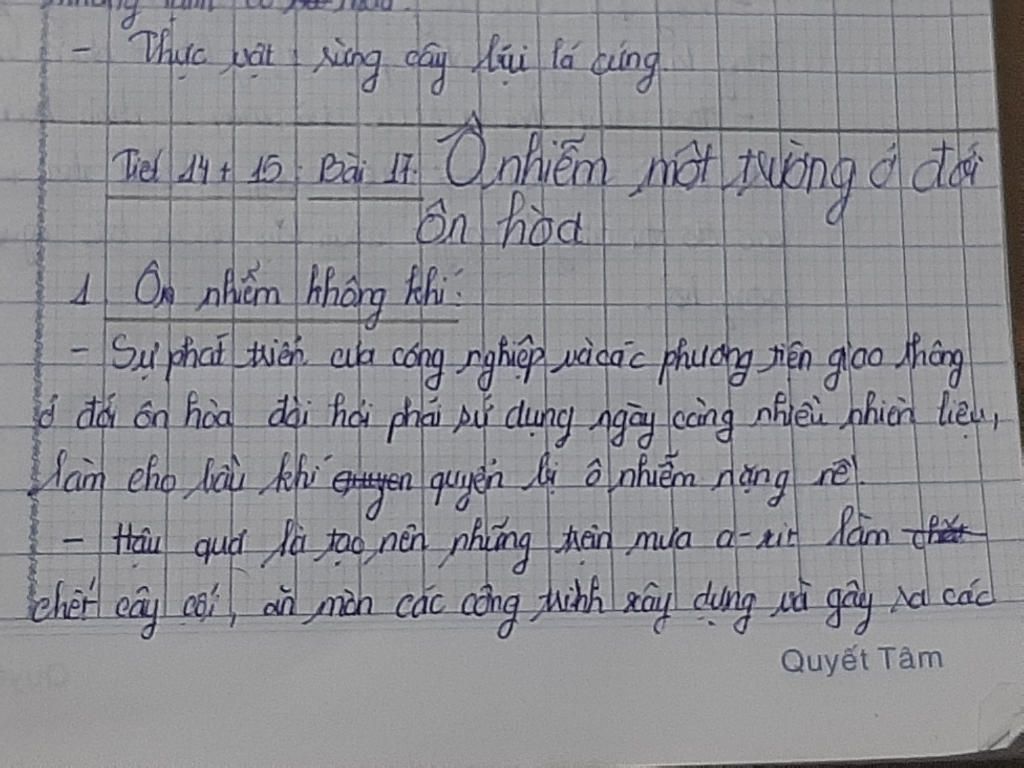 - Thực vật : rừng cây bụi lá cứng.
Tiết 14 + 15 : Bài 17. Ô nhiễm môt trường ở đới
ôn hòa
1 Ôn nhiễm không khí :
- Sự phát triển của công nghiệp và các phương tiện giao thông
ở đới ôn hòa đòi hỏi phải sử dụng ngày càng nhiều nhiên liệu,
làm cho bầu khí quyển bị ô nhiễm nặng nề.
- Hậu quả là tạo nên những trận mưa a-xit làm
chết cây cối, ăn mòn các công trình xây dựng và gây ra các
Quyết Tâm